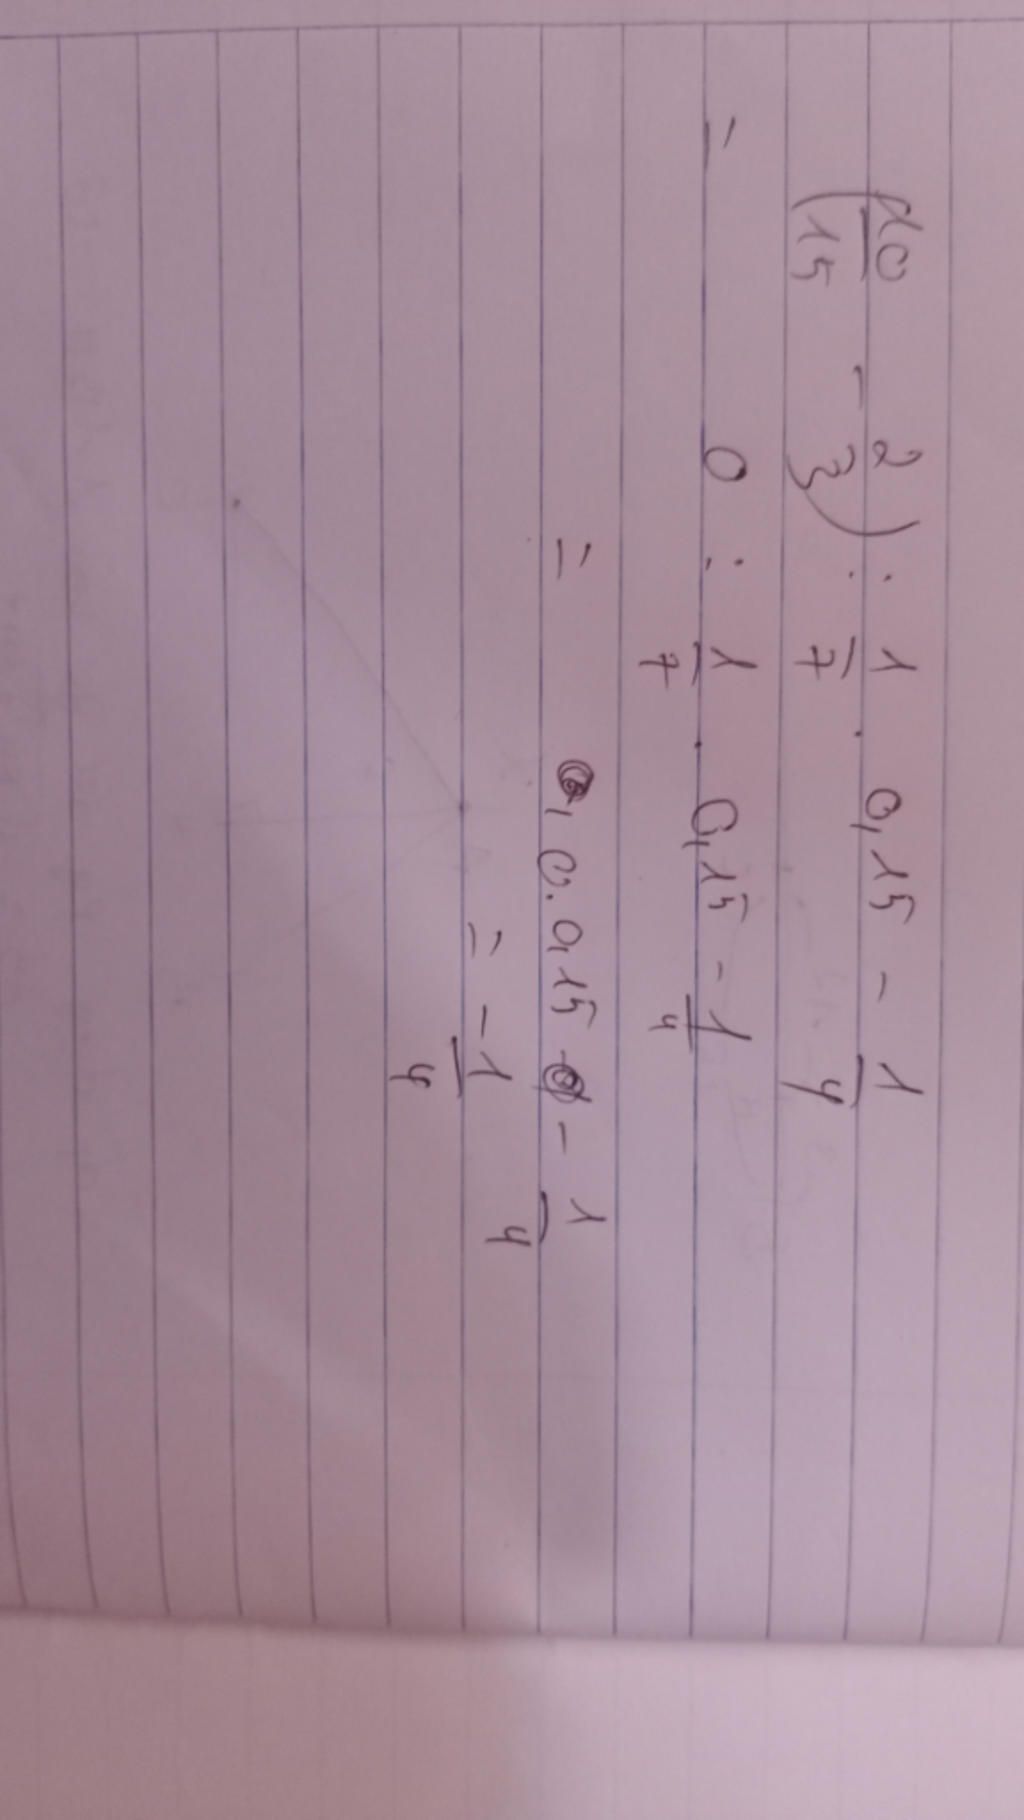 (10/15 - 2/3) : 1/7 . 0,15 - 1/4
= 0 : 1/7 . 0,15 - 1/4
= 0 . 0,15 - 1/4
= -1/4